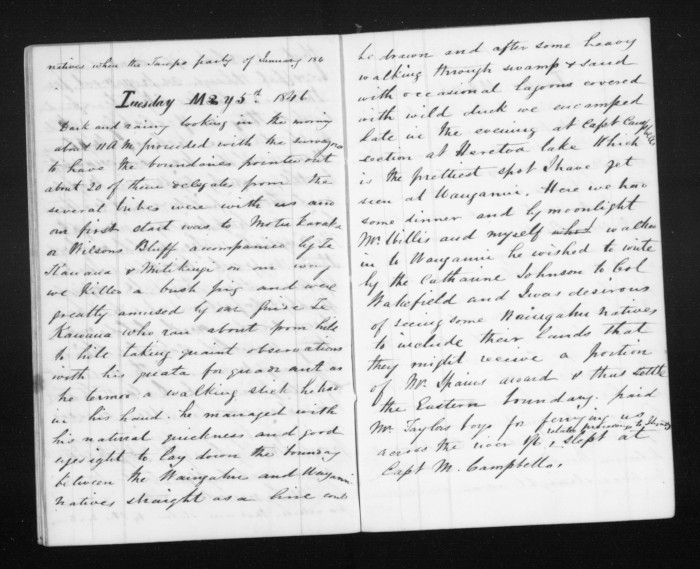 natives when the Taupo party of January 184
Tuesday May 5th 1846
Dark and rainy looking in the morning
about 11 A M proceeded with the surveyors
to have the boundaries pointed out
about 20 of those delegates from the
several tribes were with us and
our first start was to Motu Karaka
or Wilsons Bluff accompanied by Te
Kawana & Mitikingi on our way
we killed a bush pig and were
greatly amused by our guide Te
Kawana who ran about from hill
to hill taking quaint observations
with his for quadrant as
he termed a walking stick he had
in his hand. he managed with
his natural quickness and good
eyesight to lay down the boundary
between the Waingahu and Wanganui
natives straight as a line could
be drawn and after some heavy
walking through swamp & sand
with occasional lagoons covered
with wild duck we encamped
late in the evening at Capt Campbells
section at Heretoa lake which
is the prettiest spot I have yet
seen at Wanganui. Here we had
some dinner and by moonlight
Mr Willis and myself walked
in to Wanganui he wished to write
by the Catharine Johnson to Col
Wakefield and I was desirous
of seeing some Waingahu natives
to include their lands that
they might receive a portion
of Mr Spains award & thus settle
the Eastern boundary. paid
Mr Taylors boys for ferrying us
across the river & slept at
Capt M. Campbells.